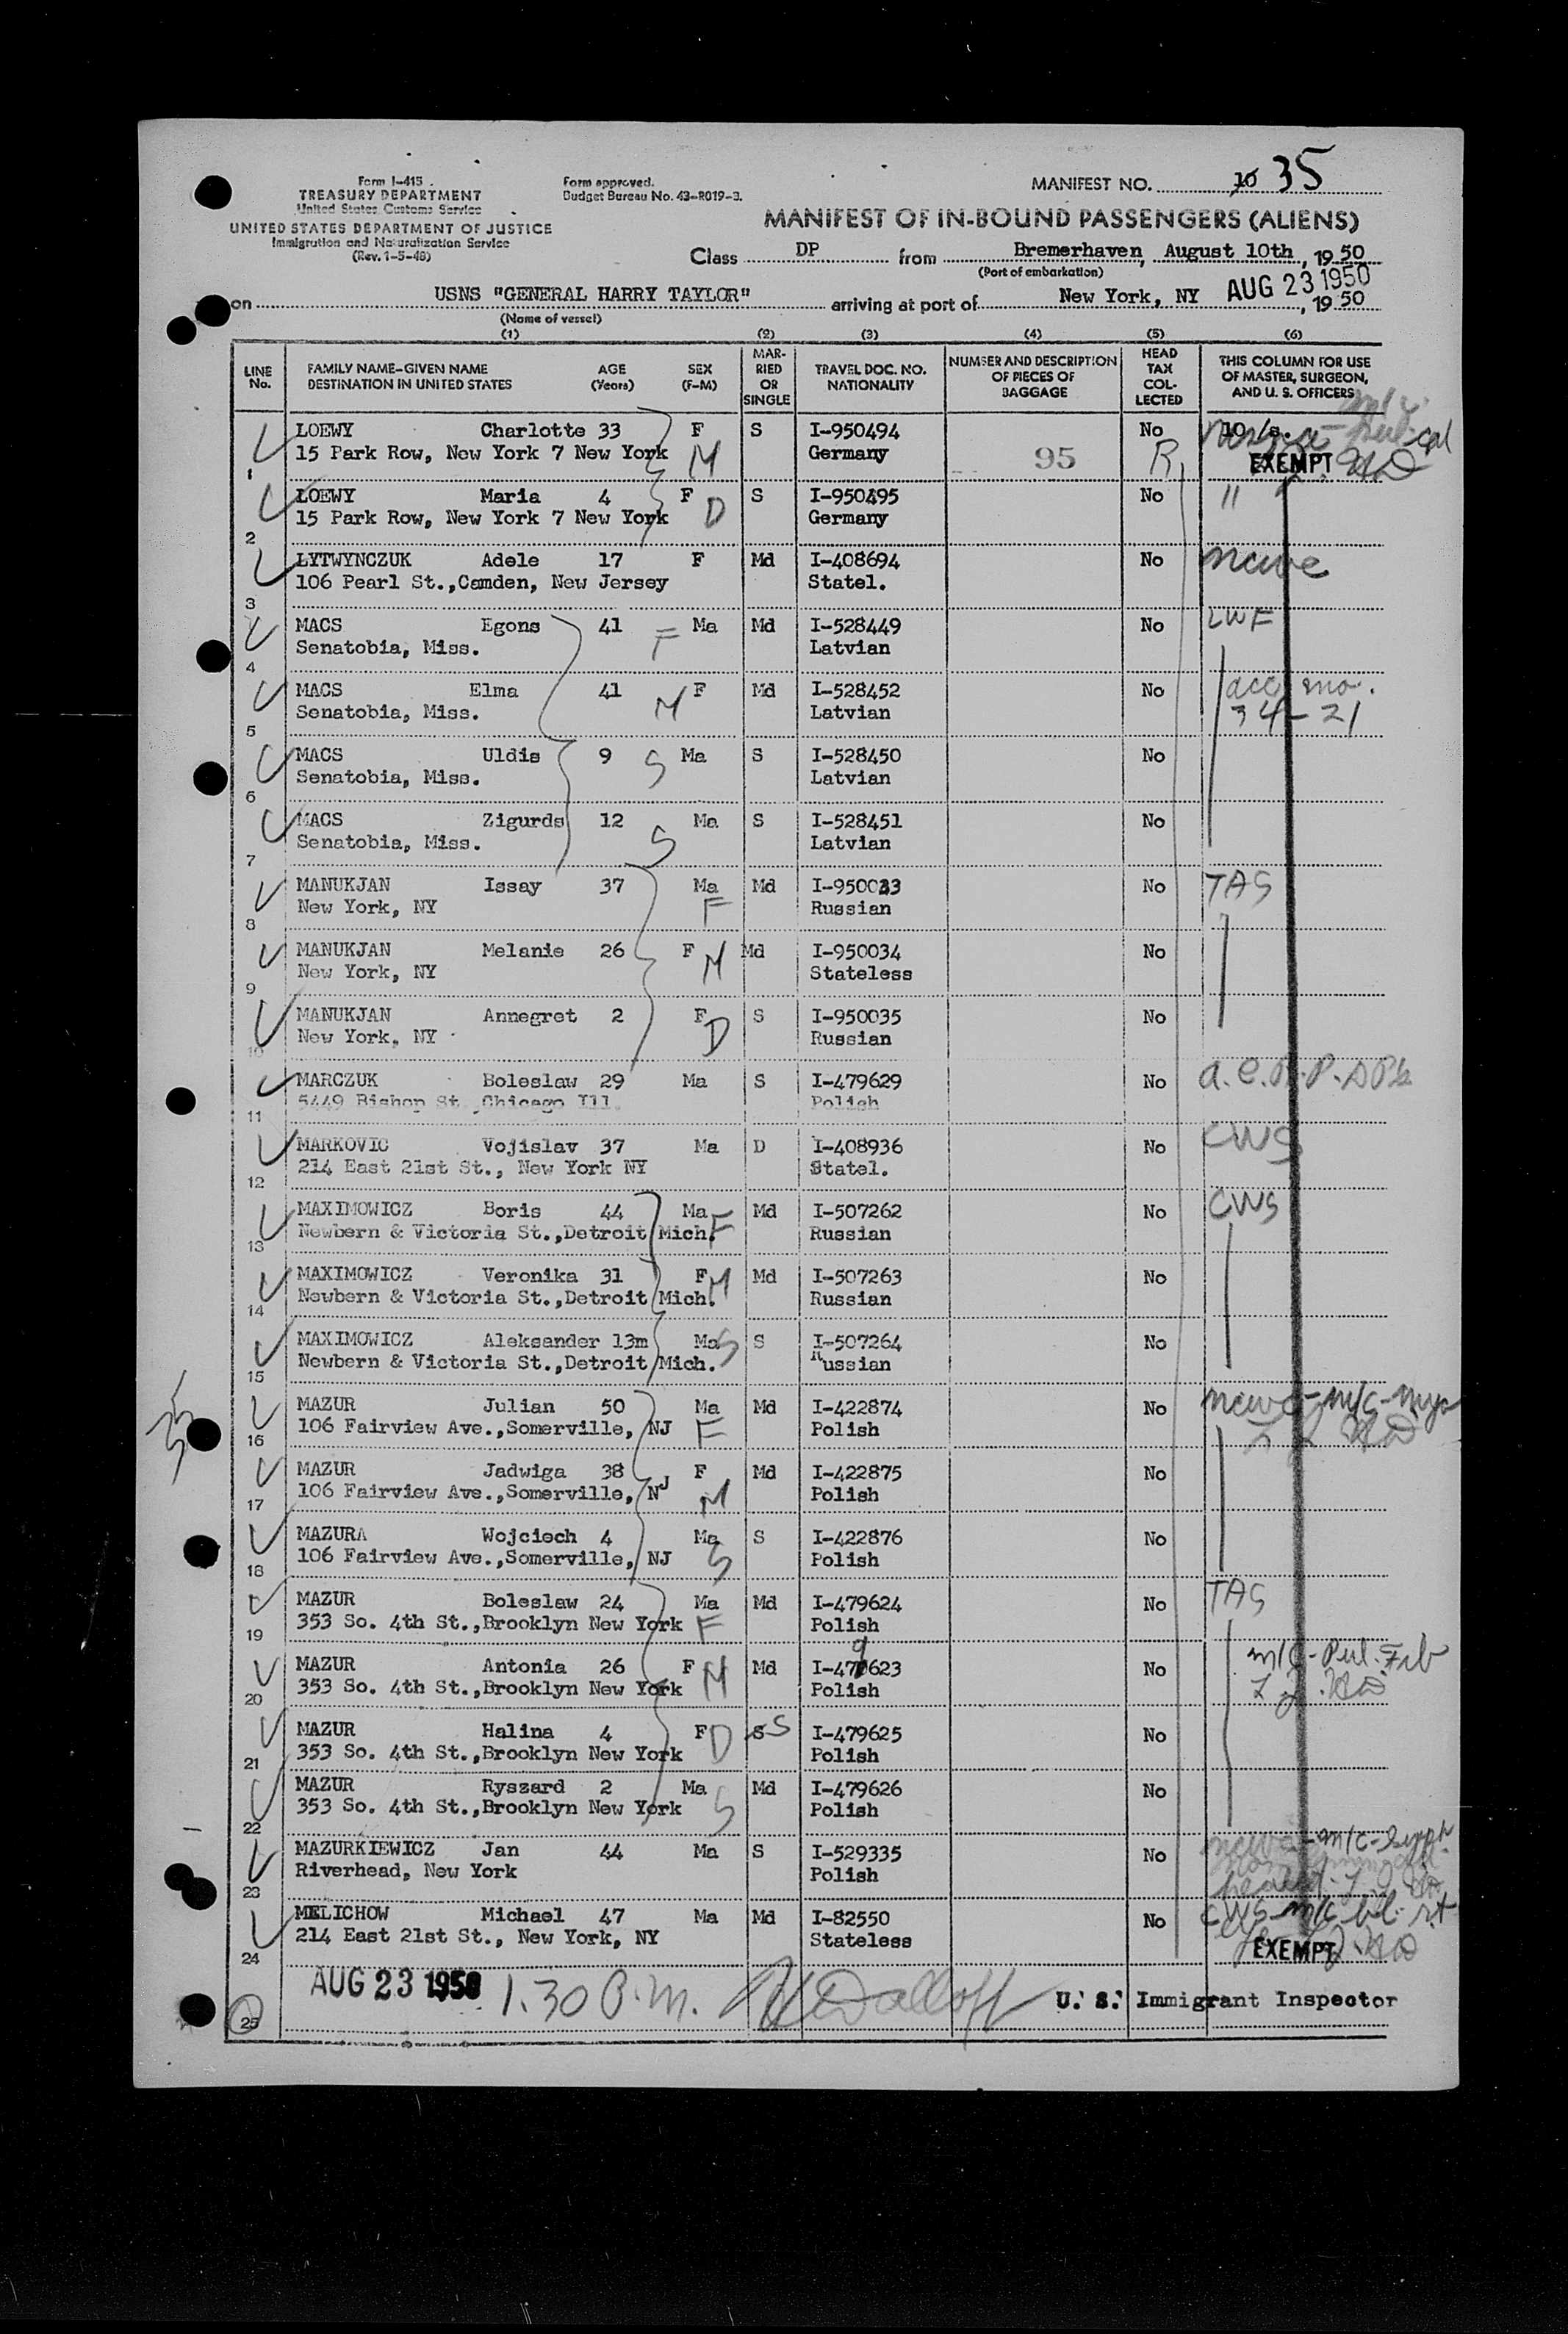 Form I-415
TREASURY DEPARTMENT
United States Customs Service
UNITED STATES DEPARTMENT OF JUSTICE
Immigration and Naturalization Service
(Rev. 1-5-48)
Form approved.
Budget Bureau No. 43-R019-3.
MANIFEST NO. 10 35
MANIFEST OF IN-BOUND PASSENGERS (ALIENS)
Class DP from Bremerhaven, August 10th, 1950
(Port of embarkation)
AUG 23 1950
on USNS "GENERAL HARRY TAYLOR" arriving at port of New York, NY, 1950
(Name of vessel)
(1) (2) (3) (4) (5) (6)
LINE No. FAMILY NAME-GIVEN NAME DESTINATION IN UNITED STATES AGE (Years) SEX (F-M) MARRIED OR SINGLE TRAVEL DOC. NO. NATIONALITY NUMBER AND DESCRIPTION OF PIECES OF BAGGAGE HEAD TAX COLLECTED THIS COLUMN FOR USE OF MASTER, SURGEON, AND U. S. OFFICERS
LOEWY Charlotte 33 F S I-950494 No
1 15 Park Row, New York 7 New York M Germany 95 R EXEMPT
LOEWY Maria 4 F S I-950495 No "
2 15 Park Row, New York 7 New York D Germany
LYTWYNCZUK Adele 17 F Md I-408694 No ncwc
3 106 Pearl St.,Camden, New Jersey Statel.
MACS Egons 41 F Ma Md I-528449 No LWF
4 Senatobia, Miss. Latvian
MACS Elma 41 M F Md I-528452 No acc mo.
5 Senatobia, Miss. Latvian 34-21
MACS Uldis 9 S Ma S I-528450 No
6 Senatobia, Miss. Latvian
MACS Zigurds 12 Ma S I-528451 No
7 Senatobia, Miss. S Latvian
MANUKJAN Issay 37 Ma Md I-950033 No TAS
8 New York, NY F Russian
MANUKJAN Melanie 26 F M Md I-950034 No
9 New York, NY Stateless
MANUKJAN Annegret 2 F S I-950035 No
10 New York, NY D Russian
MARCZUK Boleslaw 29 Ma S I-479629 No
11 5449 Bishop St.,Chicago Ill. Polish
MARKOVIC Vojislav 37 Ma D I-408936 No CWS
12 214 East 21st St., New York NY Statel.
MAXIMOWICZ Boris 44 Ma Md I-507262 No CWS
13 Newbern & Victoria St.,Detroit Mich. F Russian
MAXIMOWICZ Veronika 31 F M Md I-507263 No
14 Newbern & Victoria St.,Detroit Mich. Russian
MAXIMOWICZ Aleksander 13m Ma S S I-507264 No
15 Newbern & Victoria St.,Detroit Mich. Russian
MAZUR Julian 50 Ma Md I-422874 No
16 106 Fairview Ave.,Somerville, NJ F Polish
MAZUR Jadwiga 38 F Md I-422875 No
17 106 Fairview Ave.,Somerville, NJ M Polish
MAZURA Wojciech 4 Ma S I-422876 No
18 106 Fairview Ave.,Somerville, NJ S Polish
MAZUR Boleslaw 24 Ma Md I-479624 No TAS
19 353 So. 4th St.,Brooklyn New York F Polish
MAZUR Antonia 26 F M Md I-479623 No m/c-Pul. Fib
20 353 So. 4th St.,Brooklyn New York Polish
MAZUR Halina 4 F D S S I-479625 No
21 353 So. 4th St.,Brooklyn New York Polish
MAZUR Ryszard 2 Ma Md I-479626 No
22 353 So. 4th St.,Brooklyn New York S Polish
MAZURKIEWICZ Jan 44 Ma S I-529335 No
23 Riverhead, New York Polish
MELICHOW Michael 47 Ma Md I-82550 No CWS
24 214 East 21st St., New York, NY Stateless EXEMPT
25 AUG 23 1950 1.30 P.M. U. S. Immigrant Inspector
35